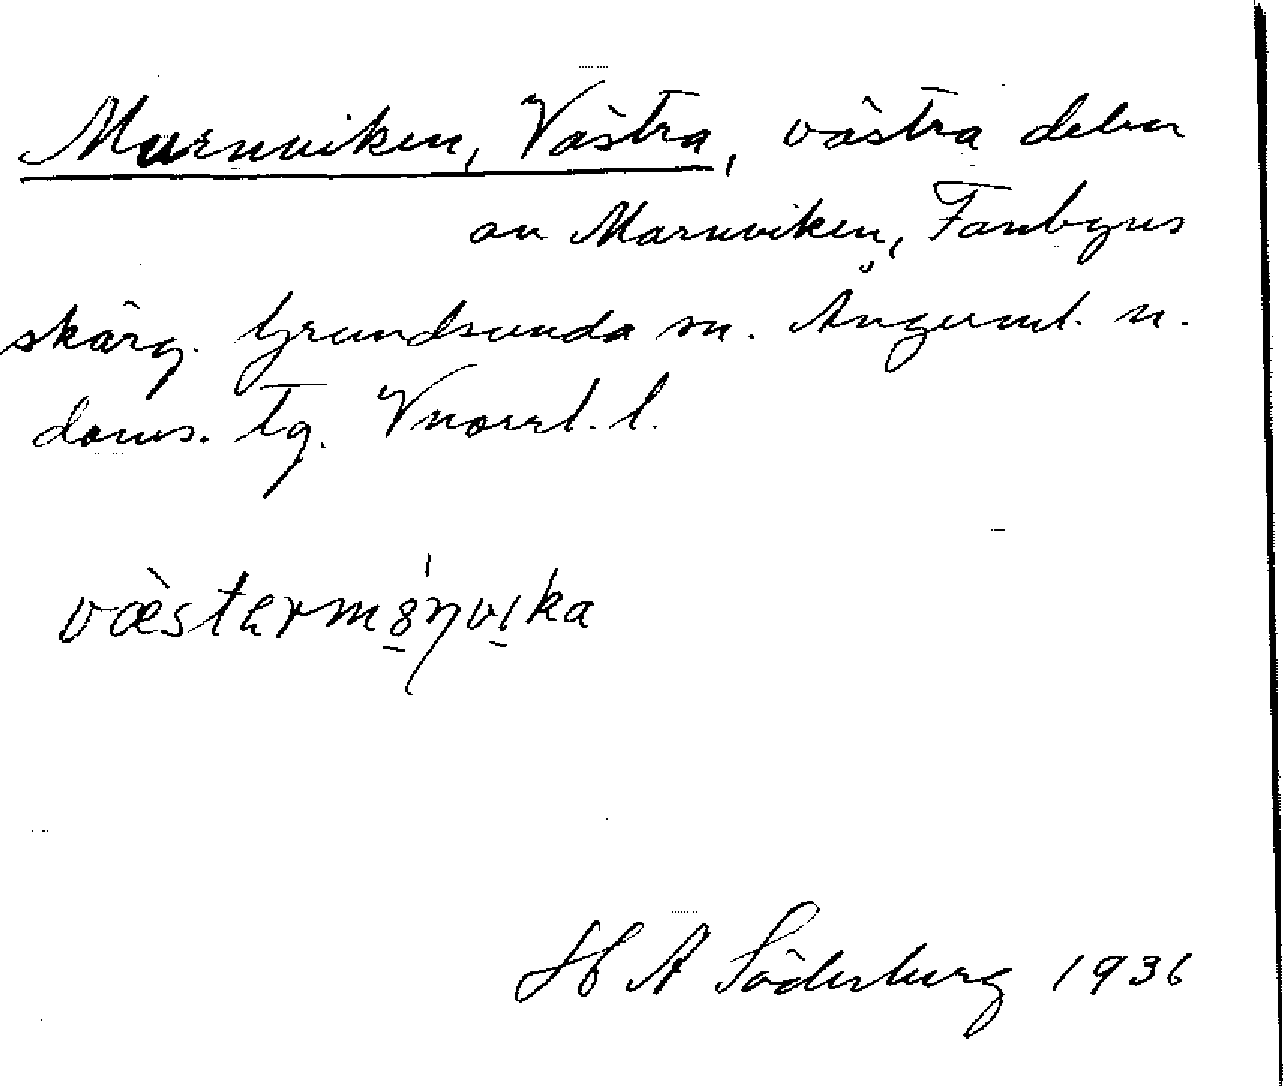 Marnviken, Västra, västra delen
av Marnviken, Fanbyns
skärg. Grundsunda sn. Ångerml. n.
doms. tg. Vnorrl. l.
H A Söderberg 1936